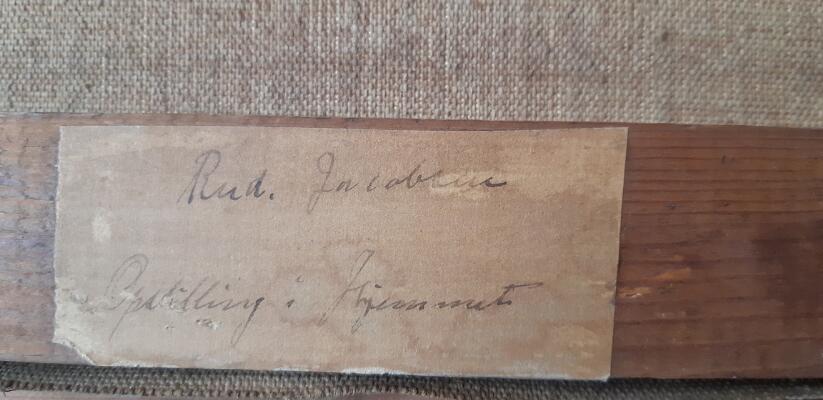 Rud. Jacobsen
Opstilling i Hjemmet